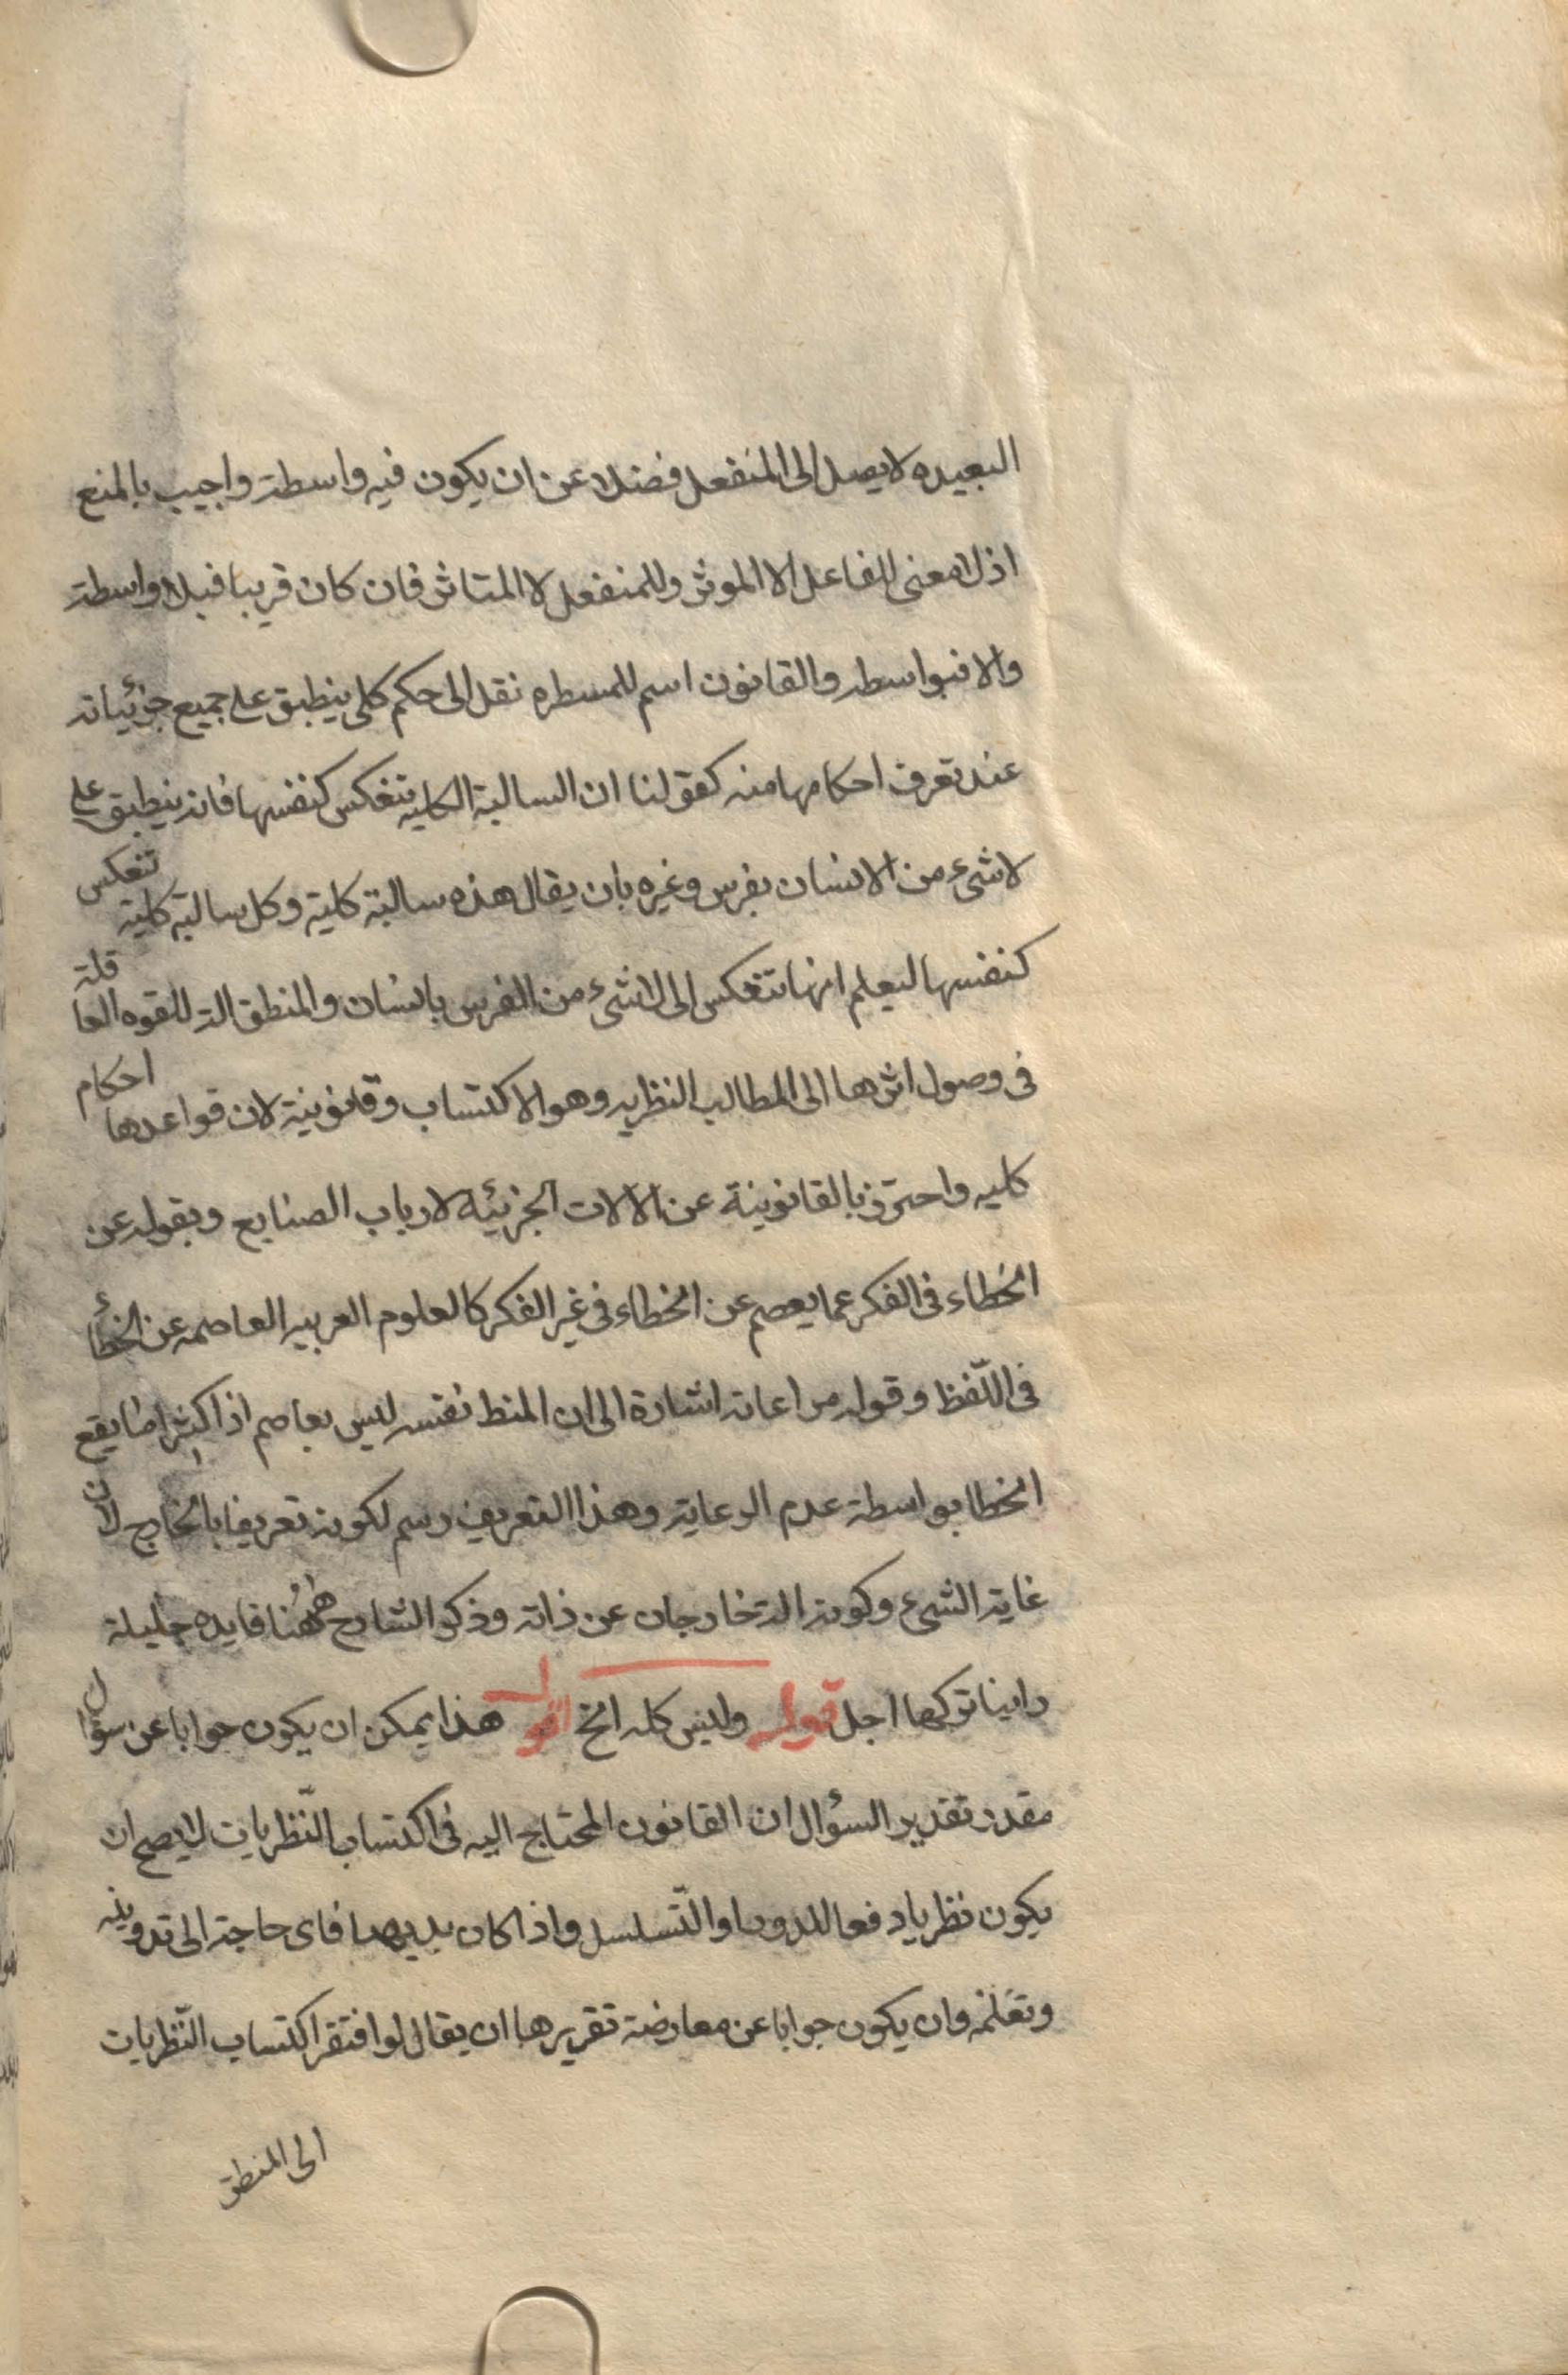 البعيده لا يصل الى المنفعل فضلا عن ان يكون فيه واسطة واجيب بالمنع
اذ لا معنى للفاعل الا الموثر وللمنفعل لا المتاثر فان كان قريبا فبلا واسطة
والا فبواسطه والقانون اسم للمسطره نقل الى حكم كلى ينطبق على جميع جزئياته
عند تعرف احكامها منه كقولنا ان السالبة الكليه تنعكس كنفسها فانه ينطبق على
لا شىء من الانسان بفرس وغيره بان يقال هذه سالبة كلية وكل سالبة كلية تنعكس
كنفسها ليعلم انها تنعكس الى لا شىء من الفرس بانسان والمنطق الة للقوه العاقلة
فى وصول اثرها الى المطالب النظريه وهو الاكتساب وقانونية لان قواعدها احكام
كليه واحترز بالقانونية عن الالات الجزئية لارباب الصنايع وبقوله عن
الخطاء فى الفكر عما يعصم عن الخطاء فى غير الفكر كالعلوم العربيه العاصمه عن الخطأ
فى اللّفظ وقوله مراعاته اشارة الى ان المنط نفسه ليس بعاصم اذ اكثرا ما يقع
الخطا بواسطة عدم الرعاية وهذا التعريف رسم لكونه تعريفا بالخارج لان
غاية الشىء وكونه الة خارجان عن ذاته وذكر الشارح ههُنا فايده جليلة
راينا تركها اجل قوله وليس كله الخ اقول هذا يمكن ان يكون جوابا عن سؤال
مقدر تقدير السؤال ان القانون المحتاج اليه فى اكتساب النّظريات لا يصح ان
يكون نظريا دفعا للدور والتّسلسل واذا كان بديهيا فاى حاجة الى تدوينه
وتعلمه وان يكون جوابا عن معارضة تقريرها ان يقال لو افتقر اكتساب النّظريات
الى المنطق